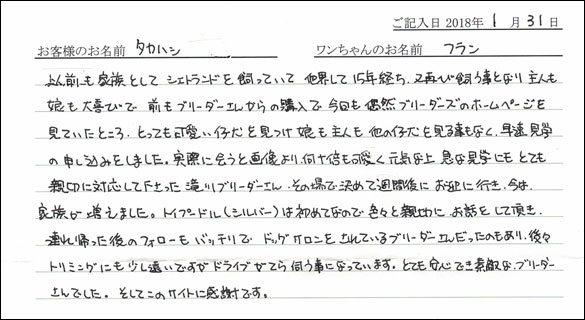 ご記入日 2018年 1月 31日
お客様のお名前 タカハシ ワンちゃんのお名前 フラン
前も家族として シェトランドを飼っていて 他界して15年経ち、又再び飼う事となり 主人も
娘も 大喜びで 前もブリーダーさんからの購入で今回も 偶然ブリーダーズのホームページを
見ていたところ、とっても可愛い仔犬を見つけ 娘も主人も 他の仔犬を見る事もなく、早速見学
の申し込みをしました。実際に会うと画像より、何十倍も可愛く 元気な上 急な見学にも とても
親切に対応して下さった 滝川ブリーダーさん、その場で決めて週間後に お迎に行き、今は、
家族が増えました。トイプードル(シルバー)は初めてなので 色々と親切に お話をして頂き、
連れ帰った後のフォローも バッチリで ドックサロンを されているブリーダーさんだったのもあり、後々
トリミングにも少し遠いですが ドライブがてら 伺う事になっています。とても安心でき素敵な、ブリーダー
さんでした。そしてこのサイトに感謝です。